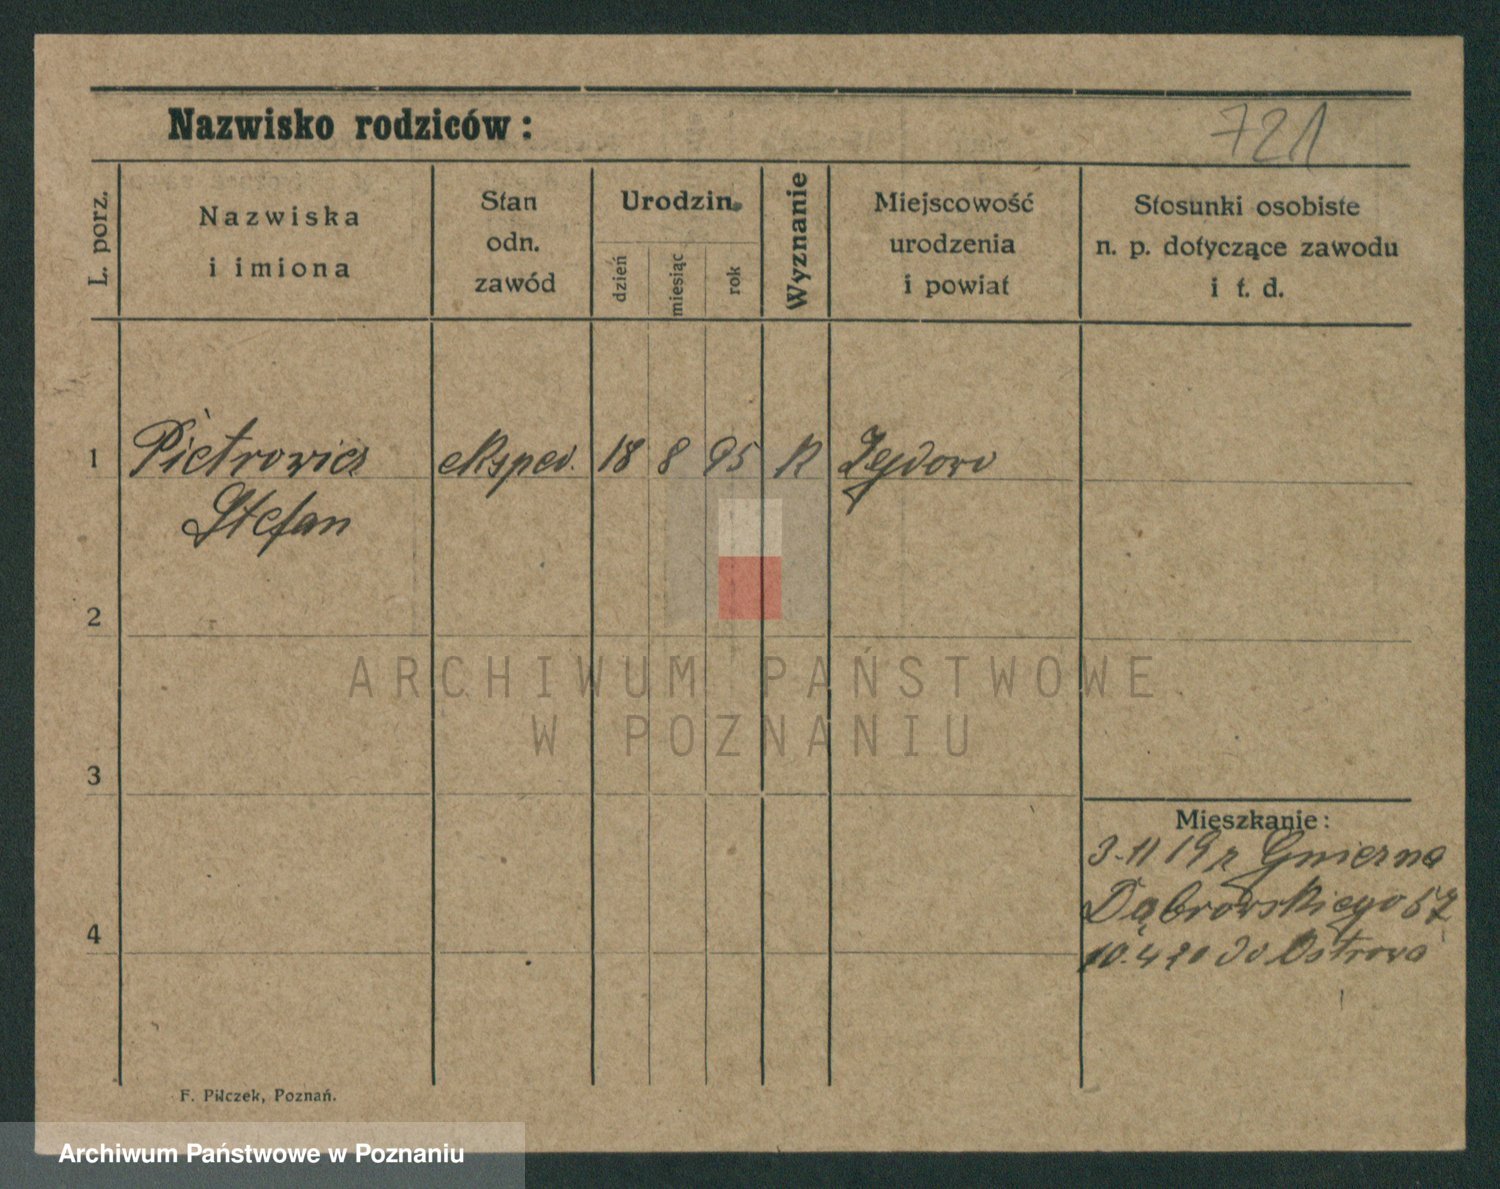 Nazwisko rodziców:
721
L. porz.
Nazwiska
i imiona
Stan
odn.
zawód
Urodzin.
dzień
miesiąc
rok
Wyznanie
Miejscowość
urodzenia
i powiat
Stosunki osobiste
n. p. dotyczące zawodu
i t. d.
1
Pietrowicz
eksped.
18
8
95
K
Stefan
2
ARCHIWUM PAŃSTWOWE
W POZNANIU
3
Mieszkanie:
3.11 19 z Gniezna
Dąbrowskiego 57
4
10.4 20 do Ostrowa
F. Pilczek, Poznań.
Archiwum Państwowe w Poznaniu